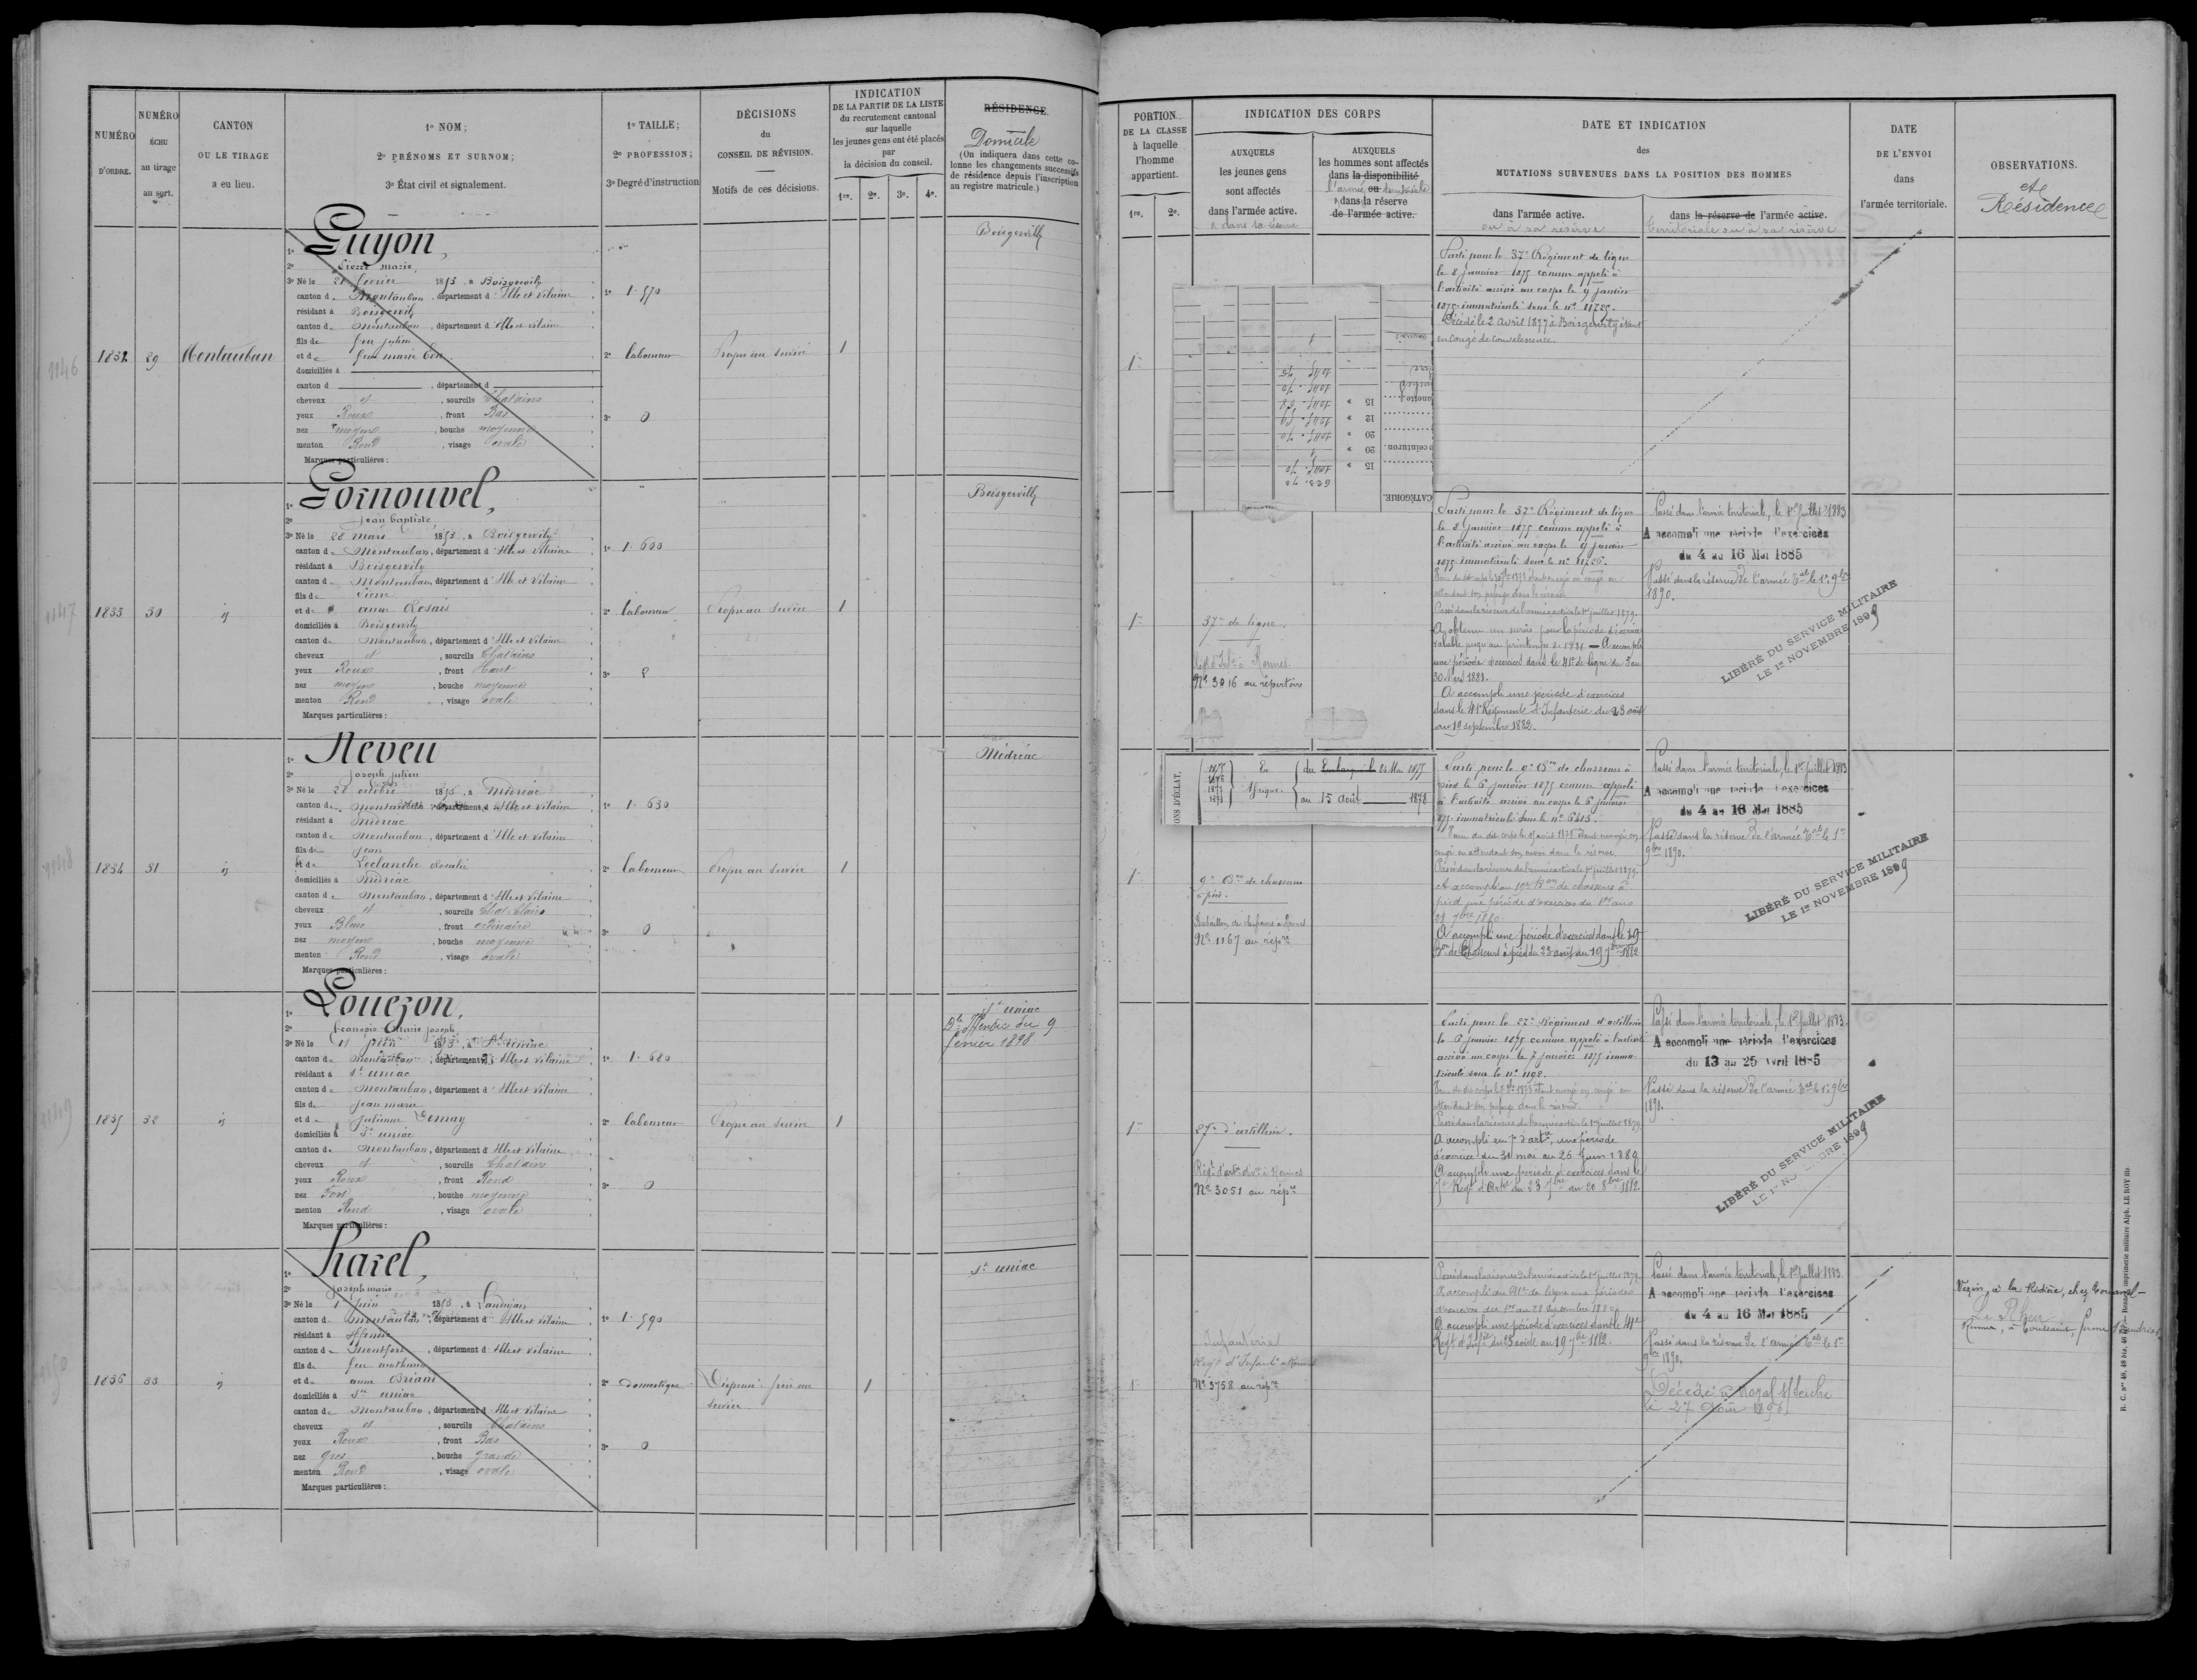 NUMÉRO
D'ORDRE.
NUMÉRO
ÉCHU
au tirage
au sort.
CANTON
OU LE TIRAGE
a eu lieu.
1º NOM;
2º PRÉNOMS ET SURNOM;
3º État civil et signalement.
1º TAILLE;
2º PROFESSION;
3º Degré d'instruction
DÉCISIONS
du
CONSEIL DE RÉVISION.
Motifs de ces décisions.
INDICATION
DE LA PARTIE DE LA LISTE
du recrutement cantonal
sur laquelle
les jeunes gens ont été placés
par
la décision du conseil.
1re. 2e. 3e. 4e.
RÉSIDENCE
Domicile
(On indiquera dans cette co-
lonne les changements successifs
de résidence depuis l'inscription
au registre matricule.)
1146
1832
29
Montauban
1º Guyon,
2º Pierre Marie,
3º Né le 21 février 1853, à Boisgervilly
canton de Montauban, département d'Ille et Vilaine
résidant à Boisgervilly
canton de Montauban, département d'Ille et Vilaine
fils de feu Julien
et de feue Marie
domiciliés à
canton d , département d
cheveux et , sourcils Chatains
yeux Roux , front Bas
nez moyen , bouche moyenne
menton Rond , visage ovale
Marques particulières :
1º 1.570
2º laboureur
3º 0
Propre au service
1
Boisgervilly
1147
1833
30
id
1º Gornouvel,
2º Jean baptiste
3º Né le 28 mars 1853, à Boisgervilly
canton de Montauban, département d'Ille et Vilaine
résidant à Boisgervilly
canton de Montauban, département d'Ille et Vilaine
fils de Pierre
et de anne Rosais
domiciliés à Boisgervilly
canton de Montauban, département d'Ille et Vilaine
cheveux et , sourcils Chatains
yeux Roux , front Haut
nez moyen , bouche moyenne
menton Rond , visage ovale
Marques particulières :
1º 1.600
2º laboureur
3º
Propre au service
1
Boisgervilly
1148
1834
31
id
1º Neveu
2º Joseph Julien
3º Né le 28 octobre 1853, à Médréac
canton de Montauban, département d'Ille et Vilaine
résidant à Médréac
canton de Montauban, département d'Ille et Vilaine
fils de Jean
et de Leclanche Rosalie
domiciliés à Médréac
canton de Montauban, département d'Ille et Vilaine
cheveux et , sourcils Chat. Clairs
yeux Bleus , front ordinaire
nez moyen , bouche moyenne
menton Rond , visage ovale
Marques particulières :
1º 1.630
2º laboureur
3º 0
Propre au service
1
Médréac
1149
1835
32
id
1º Louezon,
2º françois Marie Joseph
3º Né le 11 juin 1853, à St uniac
canton de Montauban, département d'Ille et Vilaine
résidant à St uniac
canton de Montauban, département d'Ille et Vilaine
fils de Jean marie
et de Julienne Demay
domiciliés à St uniac
canton de Montauban, département d'Ille et Vilaine
cheveux et , sourcils Chatains
yeux Roux , front Rond
nez Fort , bouche moyenne
menton Rond , visage ovale
Marques particulières :
1º 1.680
2º laboureur
3º 0
Propre au service
1
St uniac
Iffendic du 9
février 1898
1836
33
id
1º Harel,
2º Joseph marie
3º Né le 1 juin 1853, à Landujan
canton de Montauban, département d'Ille et Vilaine
résidant à
canton de Montfort, département d'Ille et Vilaine
fils de feu mathurin
et de anne Briant
domiciliés à St uniac
canton de Montauban, département d'Ille et Vilaine
cheveux et , sourcils Chatains
yeux Roux , front Bas
nez gros , bouche grande
menton Rond , visage ovale
Marques particulières :
1º 1.590
2º domestique
3º 0
Dispensé frère au
service
1
St uniac
PORTION
DE LA CLASSE
à laquelle
l'homme
appartient.
1re. 2e.
INDICATION DES CORPS
AUXQUELS
les jeunes gens
sont affectés
dans l'armée active.
& dans sa réserve
AUXQUELS
les hommes sont affectés
dans la disponibilité
l'armée ou territoriale
& dans la réserve
de l'armée active.
DATE ET INDICATION
des
MUTATIONS SURVENUES DANS LA POSITION DES HOMMES
dans l'armée active.
ou à sa réserve
dans la réserve de l'armée active.
territoriale ou à sa réserve
DATE
DE L'ENVOI
dans
l'armée territoriale.
OBSERVATIONS.
et
Résidence
1
Parti pour le 37e Régiment de ligne
le 8 Janvier 1875 comme appelé à
l'activité arrivé au corps le 9 janvier
1875 immatriculé sous le nº 11725.
Décédé le 2 avril 1877 à Boisgervilly étant
en congé de convalescence.
CATÉGORIE.
ceinturon.
1
37e de ligne.
Nº 3016 au répertoire
Parti pour le 37e Régiment de ligne
le 8 Janvier 1875 comme appelé à
l'activité arrivé au corps le 9 janvier
1875 immatriculé sous le nº 11726.
attendant son passage dans la réserve
Passé dans la réserve de l'armée active le 1er juillet 1879.
A obtenu un sursis pour la période d'exercices
valable jusqu'au printemps de 1881 — A accompli
une période d'exercices dans le 41e de ligne du 3 au
30 1881.
A accompli une période d'exercices
dans le 41e Régiment d'Infanterie du 23 août
au 19 septembre 1882.
Passé dans l'armée territoriale, le 1er Juillet 1883
A accompli une période d'exercices
du 4 au 16 Mai 1885
Passé dans la réserve de l'armée tale le 1er 9bre
1890.
LIBÉRÉ DU SERVICE MILITAIRE
LE 1er NOVEMBRE 1899
1875
1876
1877
1878
En
Afrique.
du 1875
au 15 Août 1878
1
9e Bon de chasseurs
à pied.
Nº 1167 au répre
Parti pour le 9e Bon de chasseurs à
pied le 6 janvier 1875 comme appelé
à l'activité arrivé au corps le 6 janvier
1875 immatriculé sous le nº 6413.
congé en attendant son envoi dans la réserve.
Passé dans la réserve de l'armée active le 1er juillet 1879.
A accompli au 19e Bon de chasseurs à
pied une période d'exercices du 1er au
28 7bre 1880.
A accompli une période d'exercices dans le 19
Bon de Chasseurs à pied du 23 août au 19 7bre 1882
Passé dans l'armée territoriale, le 1er Juillet 1883
A accompli une période d'exercices
du 4 au 16 Mai 1885
Passé dans la réserve de l'armée tale le 1er
9bre 1890.
LIBÉRÉ DU SERVICE MILITAIRE
LE 1er NOVEMBRE 1899
1
27e d'artillerie.
Nº 3051 au répre
Parti pour le 27e Régiment d'artillerie
le 6 janvier 1875 comme appelé à l'activité
arrivé au corps le 7 janvier 1875 imma-
triculé sous le nº 1198.
attendant son passage dans la réserve.
Passé dans la réserve de l'armée active le 1er juillet 1879.
A accompli au 7e d'artie, une période
d'exercice du 31 mai au 26 Juin 1880
A accompli une période d'exercices dans le
7e Régt d'Artie du 23 7bre au 20 8bre 1882.
Passé dans l'armée territoriale, le 1er Juillet 1883.
A accompli une période d'exercices
du 13 au 25 Avril 1885
Passé dans la réserve de l'armée tale le 1er 9bre
1890.
LIBÉRÉ DU SERVICE MILITAIRE
LE 1er NOVEMBRE 1899
1
Infanterie
Nº 3758 au répre
Passé dans la réserve de l'armée active le 1er juillet 1879.
A accompli au 41e de ligne une période
d'exercices du 1er au 28 Septembre 1880
A accompli une période d'exercices dans le 41e
Régt d'Infie du 23 août au 19 7bre 1882.
Passé dans l'armée territoriale, le 1er Juillet 1883
A accompli une période d'exercices
du 4 au 16 Mai 1885
Passé dans la réserve de l'armée tale le 1er
9bre 1890.
Décédé à Noyal
le 27 Août 1896.
Vezin, à la
Le Rheu
Rennes, à